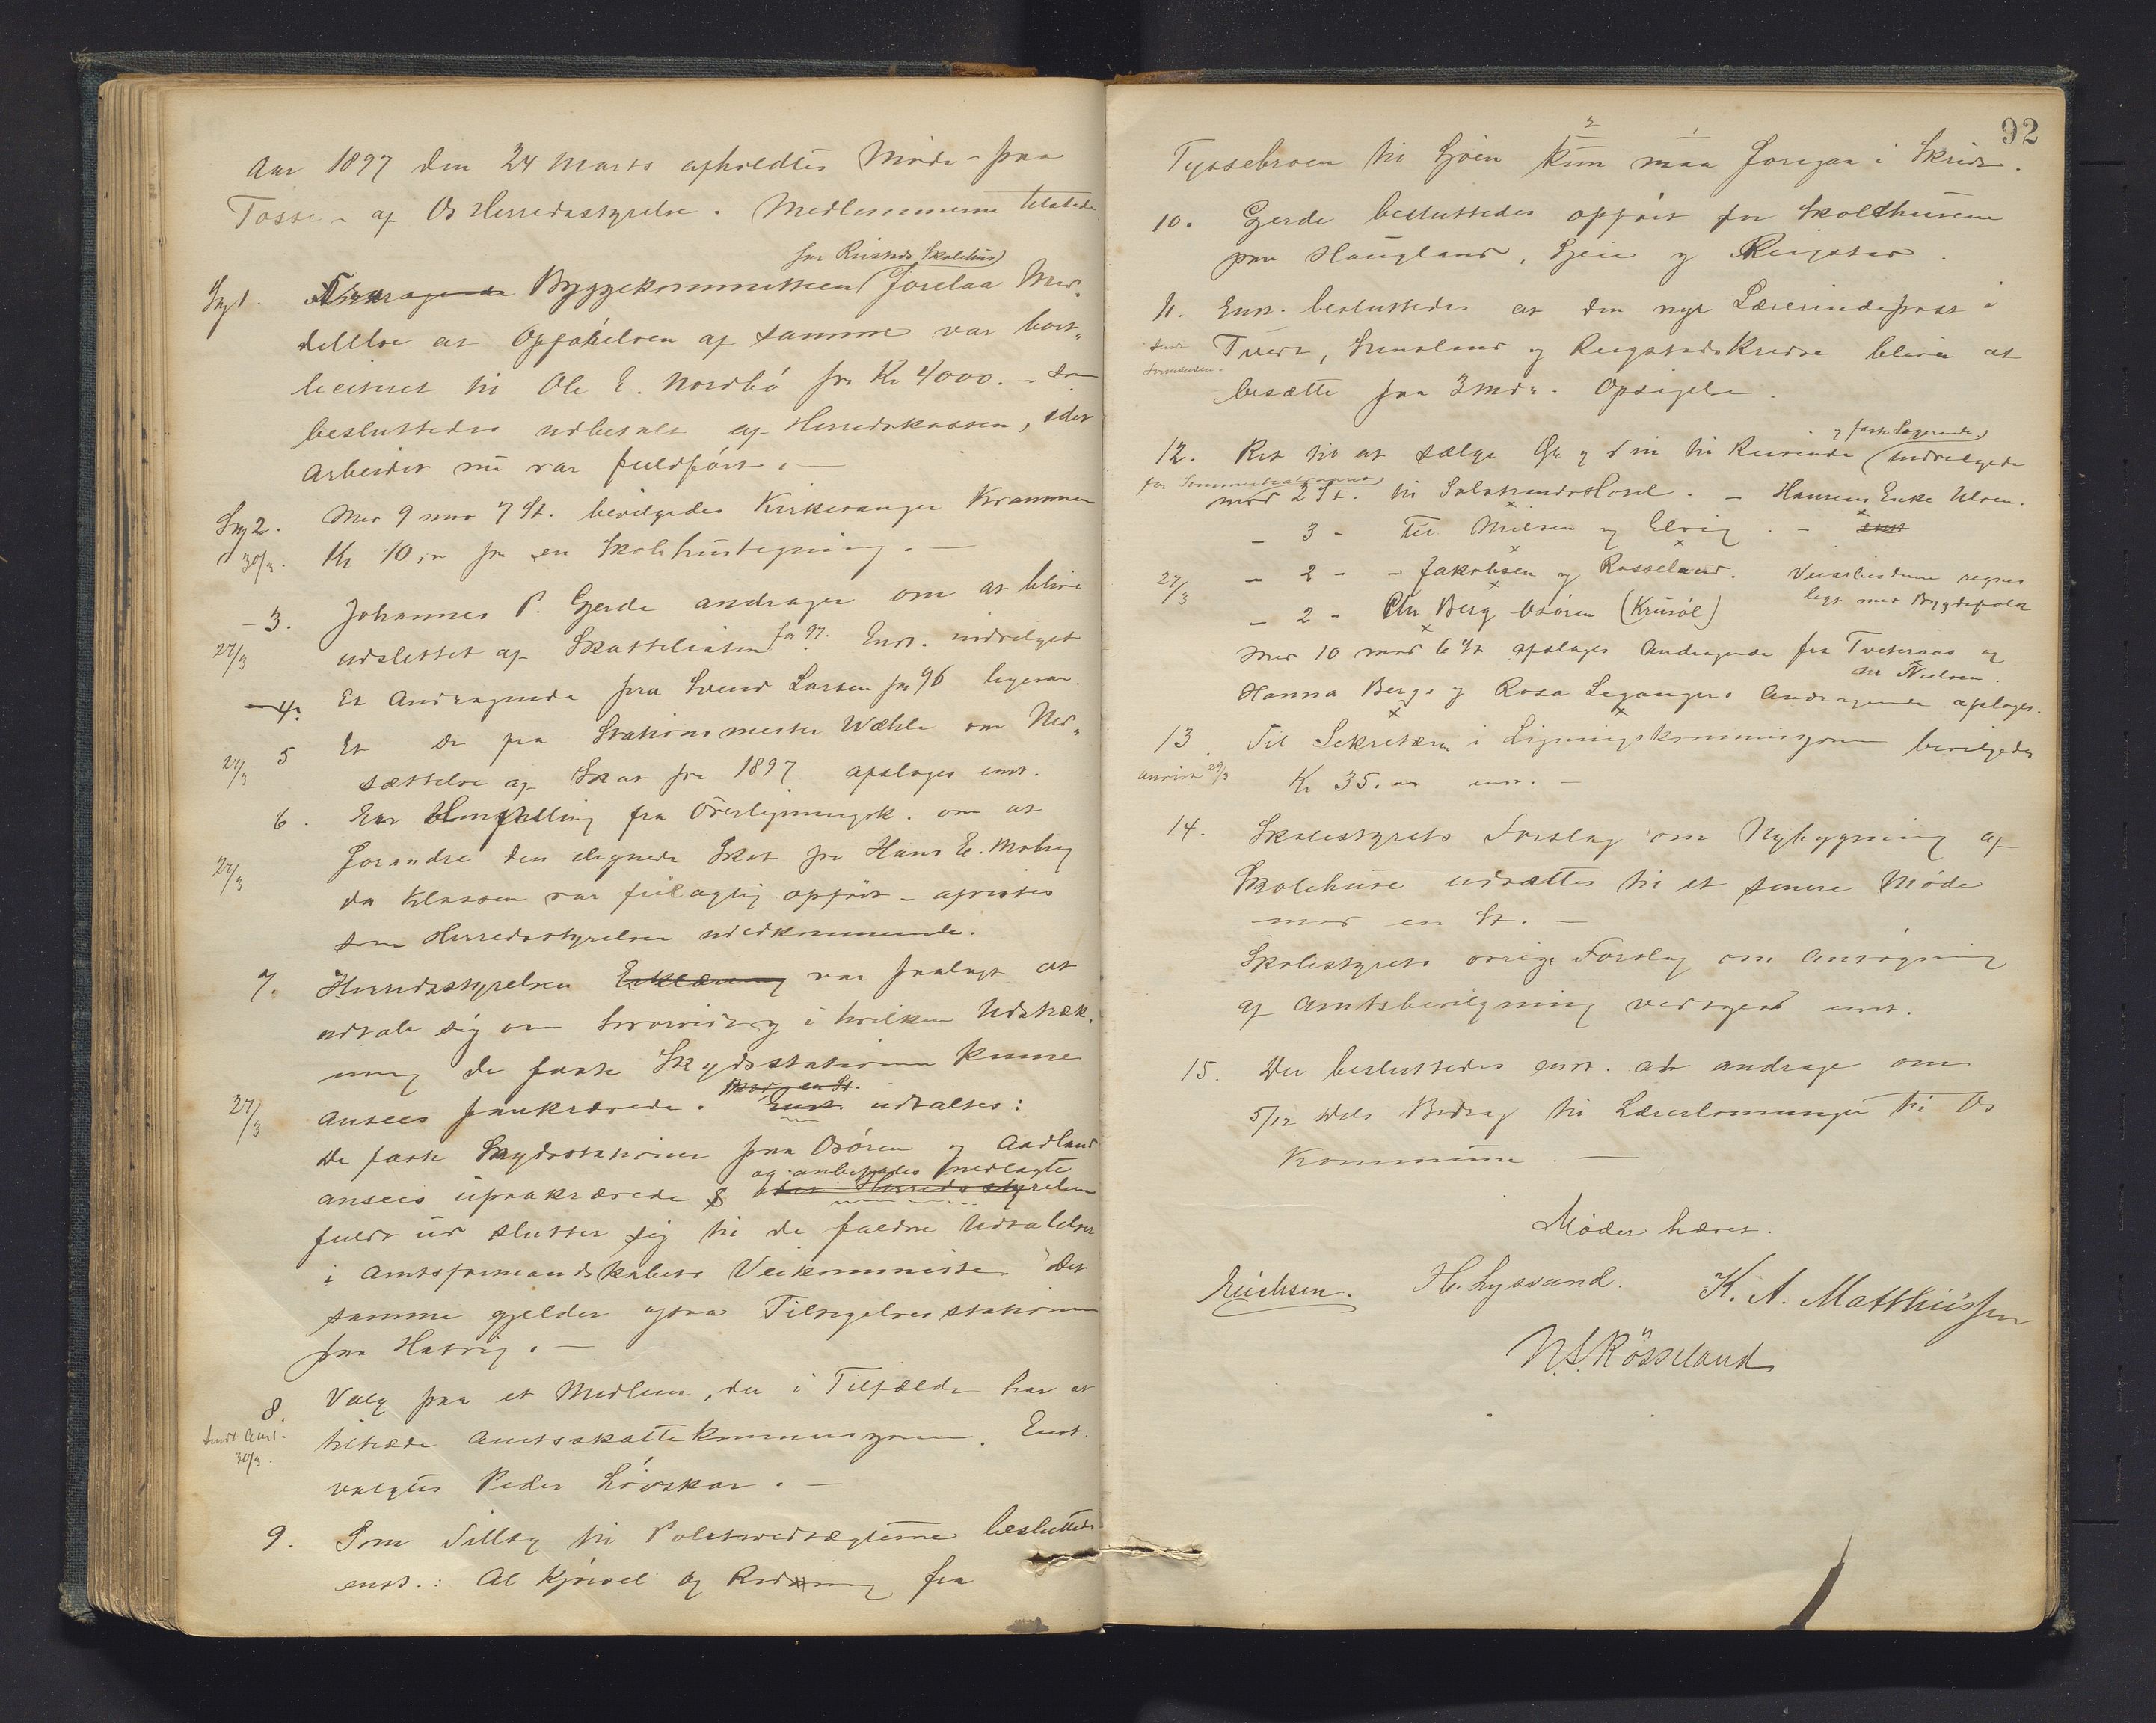 Aar 1897 den 24 Marts afholdtes Møde paa
Tøsse af Os Herredsstyrelse. Medlemmerne tilstede.
for Reistads Skolehus
Sag 1. Byggekommitteen forelaa Med-
delelse at Opførelsen af samme var bort-
liciteret til Ole E. Nordbø for Kr 4000. – som
besluttedes udbetalt af Herredskassen, idet
Arbeidet nu var fuldført. –
Sag 2. Med 9 mod 7 St. bevilgedes Kirkesanger Krammer
30/3. Kr 10,00 for en Skolehustegning. –
– 3. Johannes P. Gjerde andrager om at blive
27/3 udslettet af Skattelisten for 97. Enst. indvilget
– 4. Et Andragende fra Svend Larsen for 96 ligesaa.
5 Et Do fra Stationsmester Wæhle om Ned-
27/3 sættelse af Skat for 1897 afslages enst.
6. En Henstilling fra Overligningsk. om at
forandre den ilignede Skat for Hans E. Moberg
27/3 da Klassen var feilagtig opført – afvistes
som Herredsstyrelsen uvedkommende.
7. Herredsstyrelsen Erklæring var paalagt at
udtale sig om hvorvidt og i hvilken Udstræk-
ning de faste Skydsstationer kunne
Mod en St.
27/3 ansees paakrævede. Enst. udtaltes:
De faste Skydsstationer paa Osøren og Aadland
og anbefales nedlagte
ansees upaakrævede & idet Herredsstyrelsen
fuldt ud slutter sig til de faldne Udtalelser
i Amtsformandskabets Veikommitte. Det
samme gjelder ogsaa Tilsigelsesstationen
paa Hatvig. –
8. Valg paa et Medlem, der i Tilfælde har at
Sendt Amt. tiltræde Amtsskattekommisjonen. Enst.
30/3. valgtes Peder Løvskar. –
9. Som Tillæg til Politivedtægterne besluttedes
enst.: Al Kjørsel og Ridning fra
92
2 1
Tyssebroen til Sjøen kun maa foregaa i Skridt.
10. Gjerde besluttedes opført for Skolehusene
paa Haugland, Søeie og Reigstad.
11. Enst. besluttedes at den nye Lærerindepost i
Tveit, Sunsland og Reigstadskredse bliver at
besætte paa 3 mdrs. Opsigelse.
og faste Logerende
12. Ret til at sælge Øl og Vin til Reisende indvilgedes
for Sommerhalvaaret
mod 2 St. til Solstrands Hotel. – Hansens Enke Ulven.
– 3 – Til Nielsen og Elvig. – enst
27/3 – 2 – – Jakobsen og Røsseland. Veiarbeiderne regnes
– 2 – Chr Berg Osøren (Krusøl) ligt med Bygdefolk
Med 10 mod 6 St afslages Andragende fra Tveteraas og
M Nielsen.
Hanna Bergs og Rosa Legangers Andragende afslages.
13. Til Sekretæren i Ligningskommissjonen bevilgedes
Anvist 29/3 Kr 35.00 enst. –
14. Skolestyrets Forslag om Nybygning af
Skolehuse udsættes til et senere Møde
mod en St. –
Skolestyrets øvrige Forslag om Ansøgning
af Amtsbevilgning vedtoges enst.
15. Det besluttedes enst. at andrage om
5/12 Dels Bidrag til Lærerlønninger til Os
Kommune. –
Mødet hævet.
Erichsen. H. Lysvand. K. A. Matthiessen
N. L. Røsseland